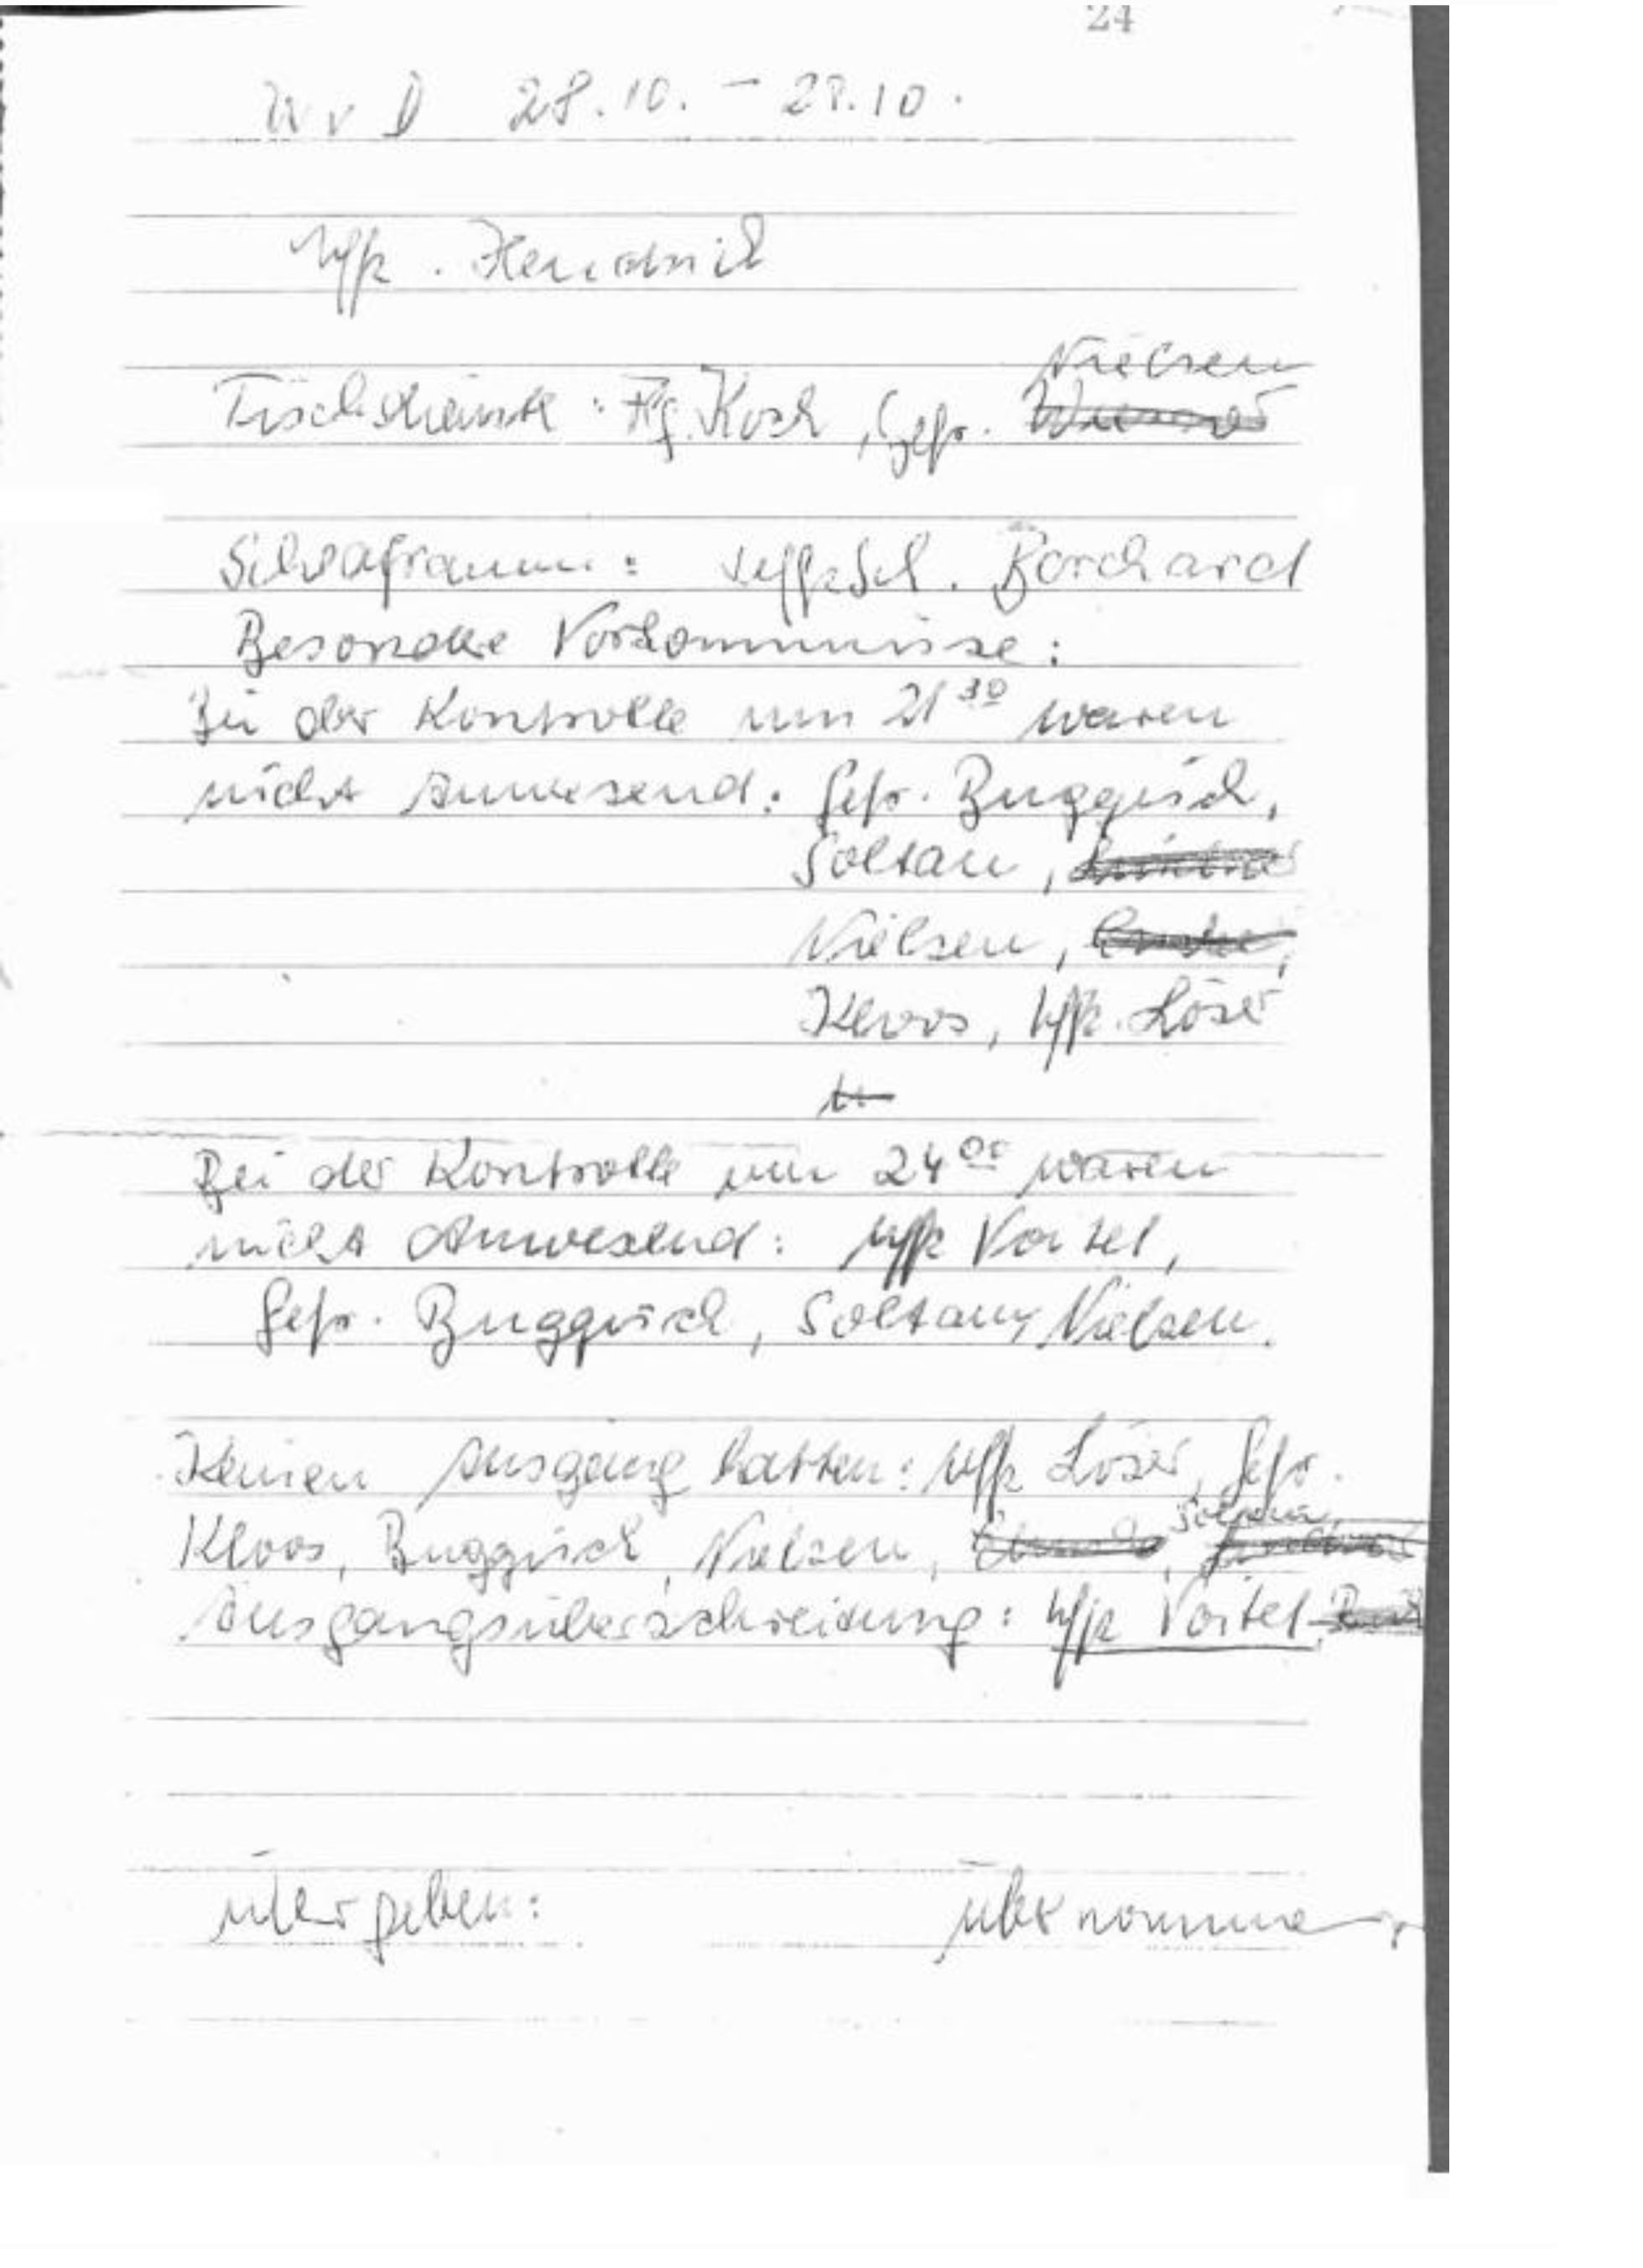 24
U v D 28.10. - 28.10.
Uffz. Hendrik
Nielsen
Tischdienste: Fg. Koch, Gefr.
Schlafraum: Borchard
Besondere Vorkommnisse:
Bei der Kontrolle um 21 30 waren
nicht Anwesend: Gefr. Buggisch,
Soltau,
Nielsen,
Kloos, Uffz. Löser
Bei der Kontrolle um 24 00 waren
nicht Anwesend: Uffz Voitel,
Gefr. Buggisch, Soltau, Nielsen.
Keinen Ausgang hatten: Uffz Löser, Gefr.
Soltau,
Kloos, Buggisch, Nielsen,
Ausgangsüberschreitung: Uffz Voitel
übergeben: übernommen